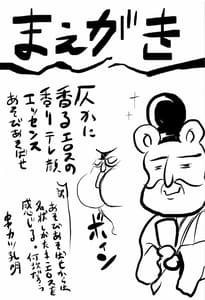 まえがき
仄かに
香るエロスの
香り テレ顔
エッセンス
あそびあそばせ
ボイン
あそびあそばせからは
名状しがたきエロスを
感じる。何故だろう